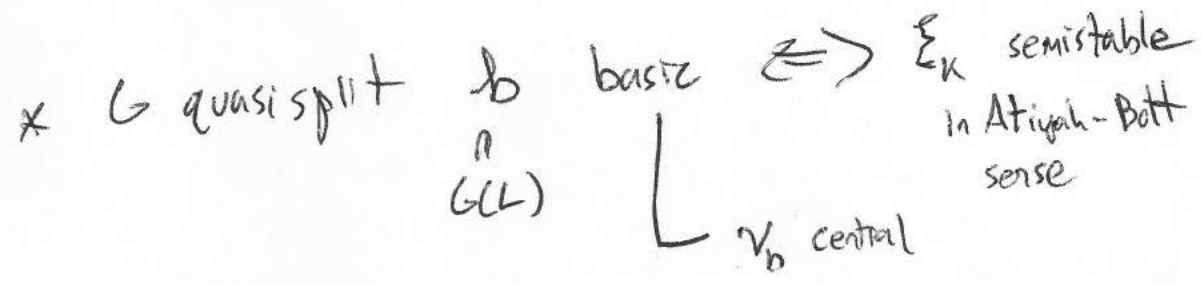 * G quasisplit b basic <=> ℰ_K semistable
in Atiyah-Bott
sense
∩
G(L)
ν_b central